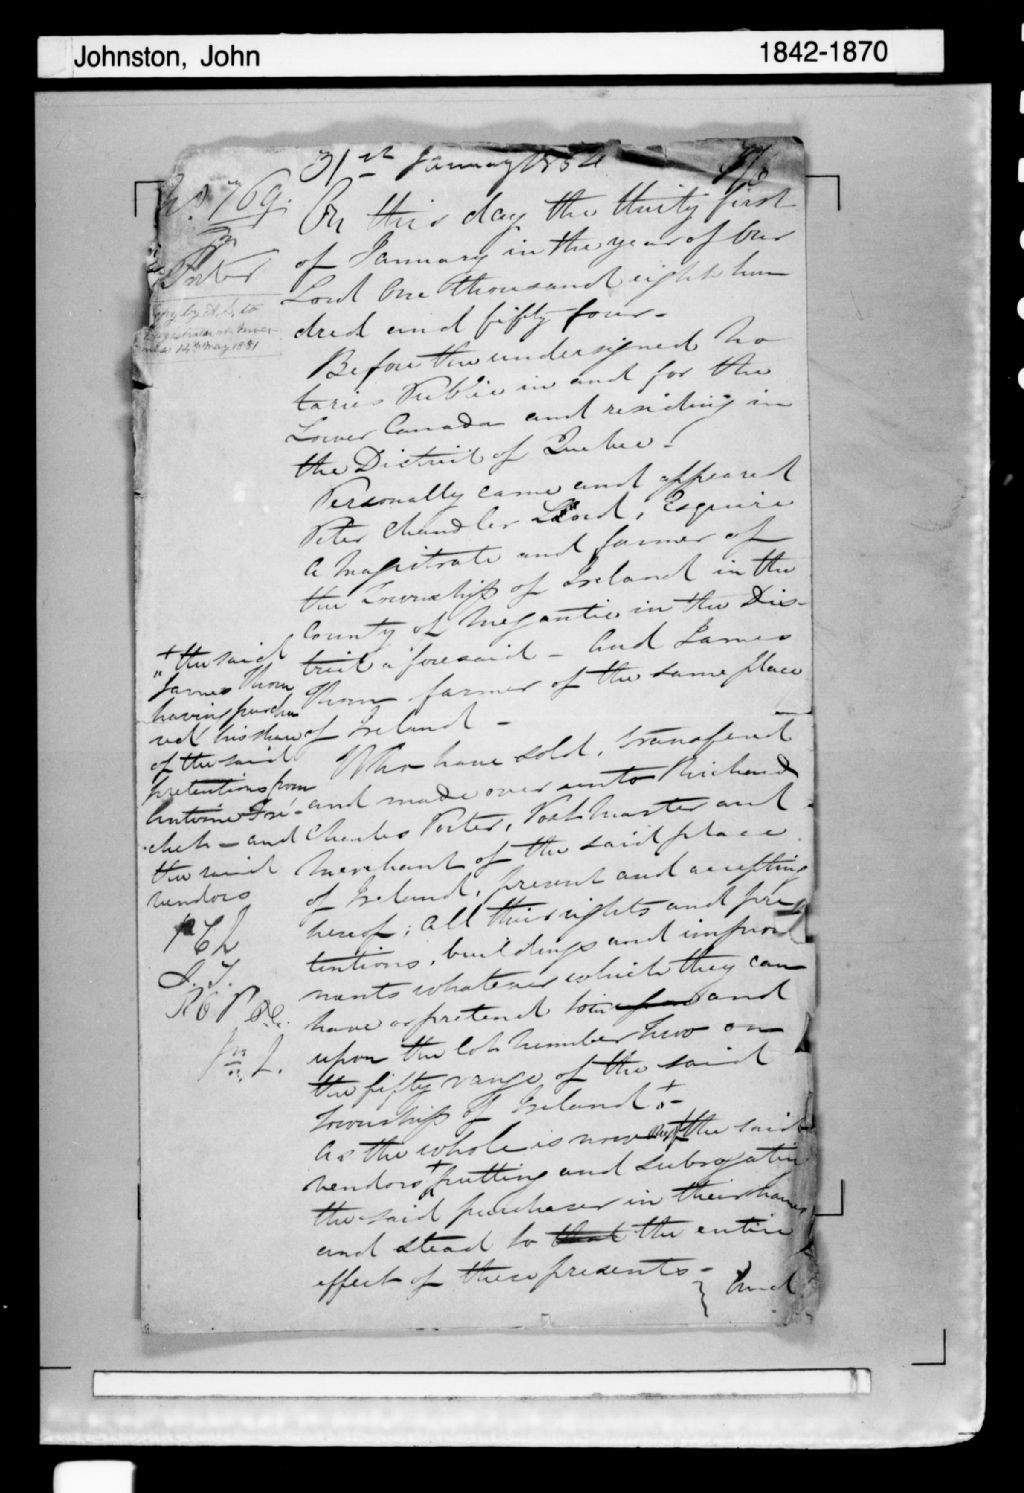 Johnston, John
1842-1870
31st January 1854
No. 769.
Porter
Copy by
14th May 1881
On this day the thirty first
of January in the year of Our
Lord One thousand eight hun
dred and fifty four-
Before the undersigned No
taries Public in and for the
Lower Canada and residing in
the District of Quebec-
Personally came and appeared
Peter Chandler Lord, Esquire
a Magistrate and farmer of
the Township of Ireland in the
County of Megantic in the Dis-
trict aforesaid - And James
Thom farmer of the same place
of Ireland -
Who have sold, transferred
and made over unto Richard
Charles Porter, Postmaster and
Merchant of the said place
of Ireland, present and accepting
hereof; all their rights and pre
tentions, buildings and improve
ments whatever which they can
have or pretend to in and
upon the lot Number two on
the fifty range of the said
Township of Ireland +-
As the whole is now the said
vendors + putting and subrogating
the said purchaser in their names
and stead to that the entire
effect of these presents-
And
+ the said
James Thom
having purcha
sed his share
of the said
pretentions from
Antoine Fré-
chette - and
the said
vendors
P C L
J. T.
R C P
J. L.